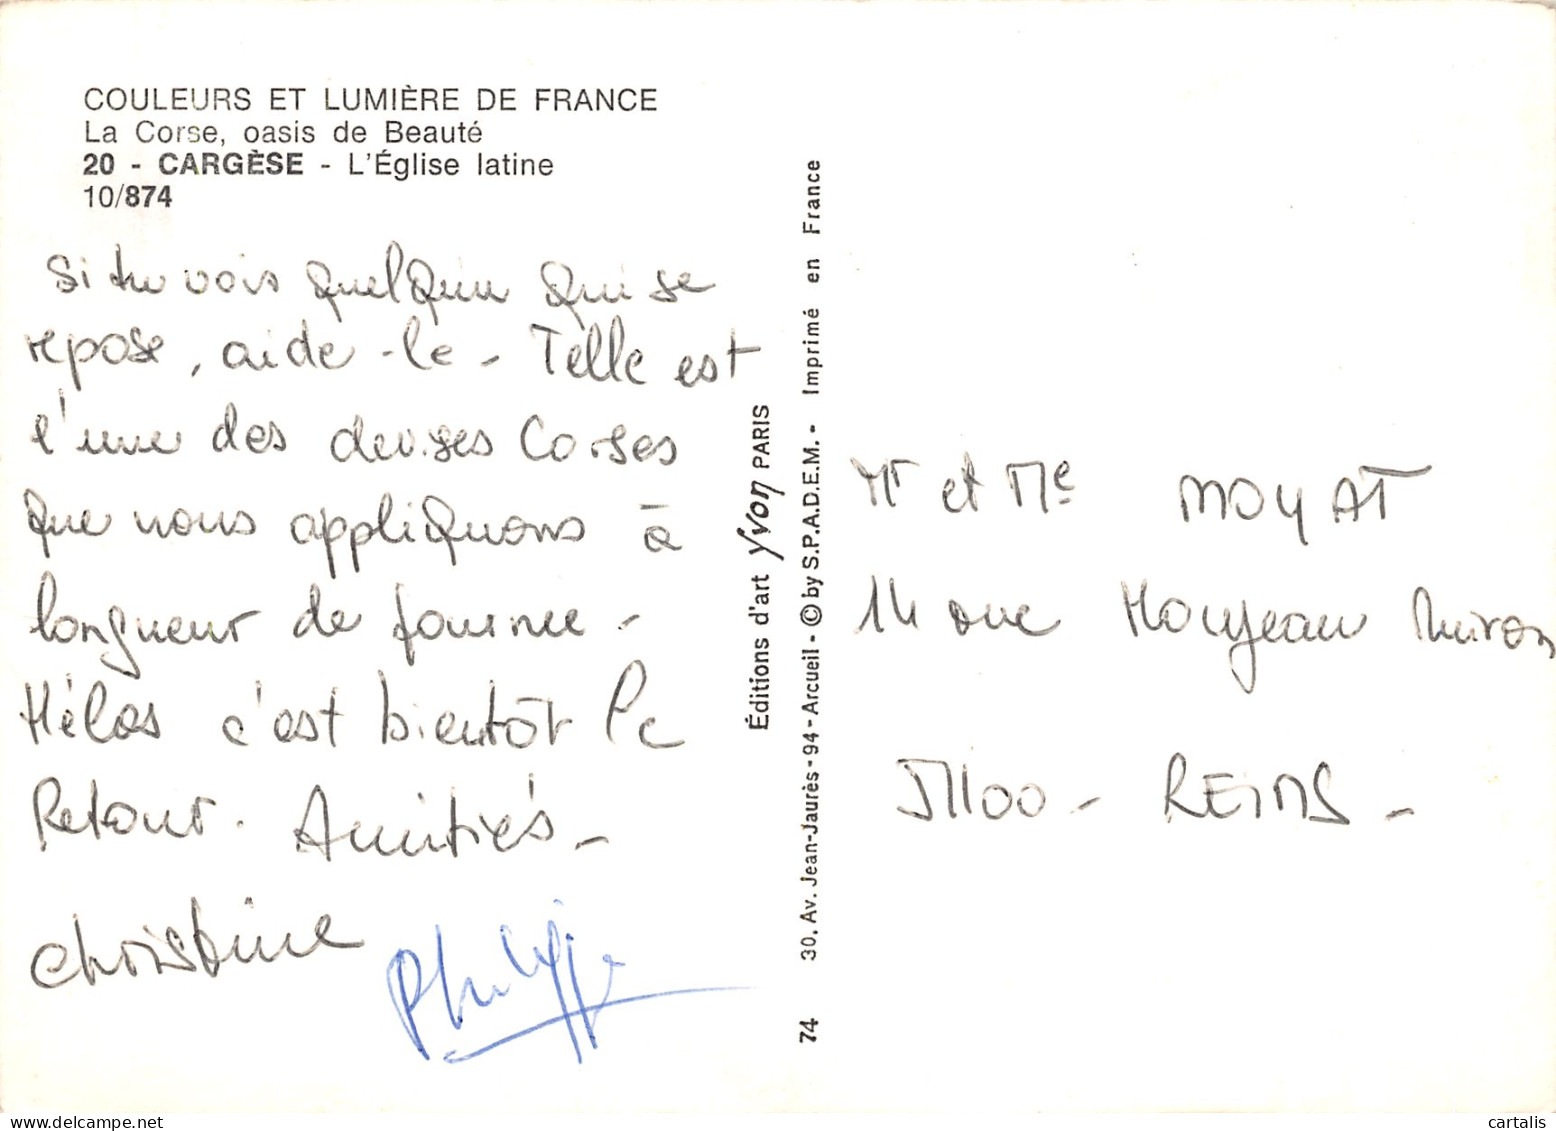 COULEURS ET LUMIÈRE DE FRANCE
La Corse, oasis de Beauté
20 - CARGÈSE - L'Église latine
10/874
Si tu vois quelqu'un qui se
repose, aide-le - Telle est
l'une des devises Corses
que nous appliquons à
longueur de journée -
Hélas c'est bientôt le
Retour. Amitiés -
Christine
Philippe
Éditions d'art Yvon PARIS
74 30, Av. Jean-Jaurès - 94 - Arcueil - © by S.P.A.D.E.M. - Imprimé en France
Mr et Me MOYAT
14 rue
51100 - REIMS -
delcampe.net
cartalis